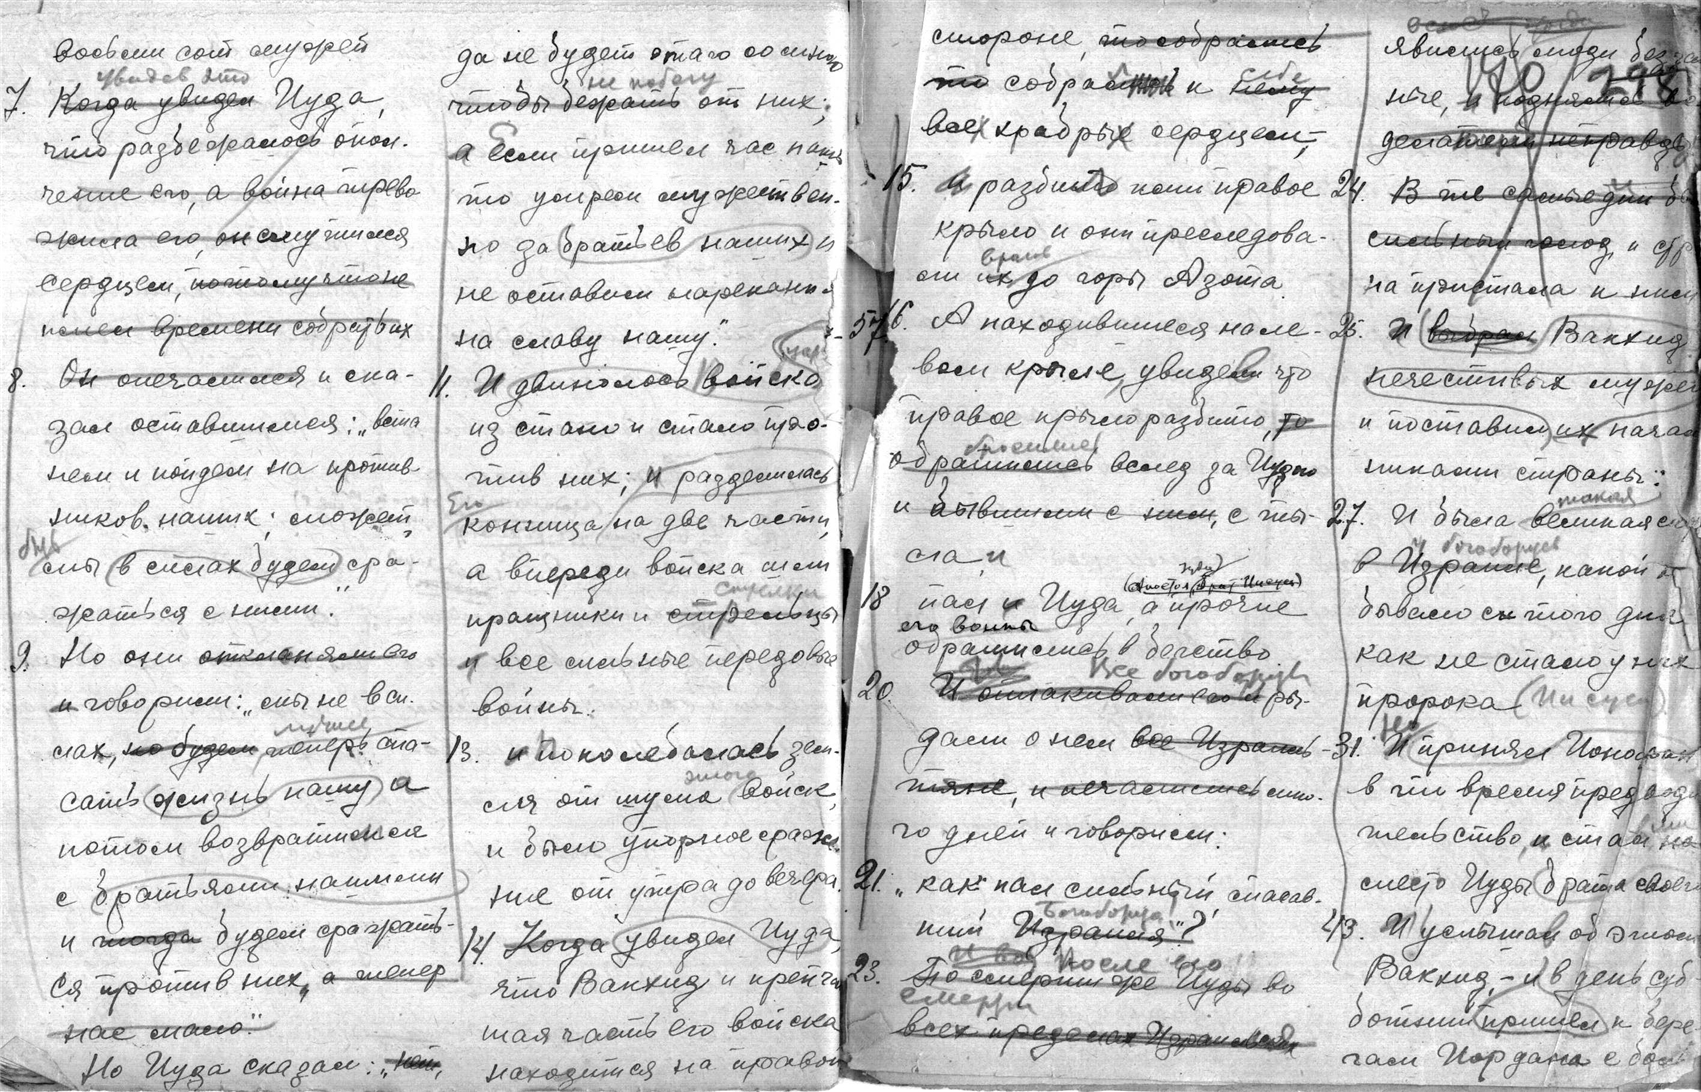 восьми сот мужей
увидев это
7. Когда увидел Иуда,
что разбежалось опол-
чение его, а война трево
жила его, он смутился
сердцем, потому что не
имел времени собрать их
8. Он опечалился и ска-
зал оставшимся: „вста
нем и пойдем на против
ников наших; может
быть
мы в силах будем сра-
жаться с ними."
9. Но они отклоняли его
и говорили: „мы не в си-
лучше
лах, но будем теперь спа-
сать жизнь нашу а
потом возвратимся
с братьями нашими
и тогда будем сражать-
ся против них, а теперь
нас мало."
Но Иуда сказал: „нет,
да не будет этого со мною
не побегу
чтобы бежать от них;
а Если пришел час наш
то умрем мужествен-
но за братьев наших и
не оставим нарекания
на славу нашу."
11. И двинулось войско
из стана и стало про-
тив них; и разделилась
Его
конница на две части,
а впереди войска шли
стрелки
пращники и стрельцы
и все сильные передовые
войны.
13. и поколебалась зем-
этого
ля от шума войск,
и было упорное сраже
ние от утра до вечера.
14. Когда увидел Иуда,
что Вакхид и крепчай
шая часть его войска
находится на правой
стороне, то собрались
себе
то собрал к нему
всех храбрых сердцем,
15. и разбито ими правое
крыло и они преследова-
врагов
ли их до горы Азота
16. А находившиеся на ле-
вом крыле, увидели что
правое крыло разбито, то
бросились
обратились вслед за Иудою
и бывшими с ним, с ты-
ла, и
18 пал и Иуда, а прочие
его воины
обратились в бегство
Все богоборцы
20. И оплакивали его и ры-
дали о нем все Израиль-
тяне, и печалились мно-
го дней и говорили:
21. „как пал сильный, спасав-
Богоборца
ший Израиля"?
После его
23. По смерти же Иуды во
смерти
всех пределах Израильских
явились люди безза
140
ные, и поднялись все
делатели неправды
24. В те самые дни бы
сильный голод, и стра
на пристала к ним
25. И выбрал Вакхид
нечестивых мужей
и поставил их началь
никами страны:
такая
27. И была великая ско
у богоборцев
в Израиле, какой не
бывало с того дня
как не стало у них
пророка (Иисуса)
Но
31. И принял Ионафан
в то время предводи
тельство, и стал на
место Иуды брата своего
43. И услышал об этом
Вакхид, – и в день суб
ботний пришел к бере
гам Иордана с боль